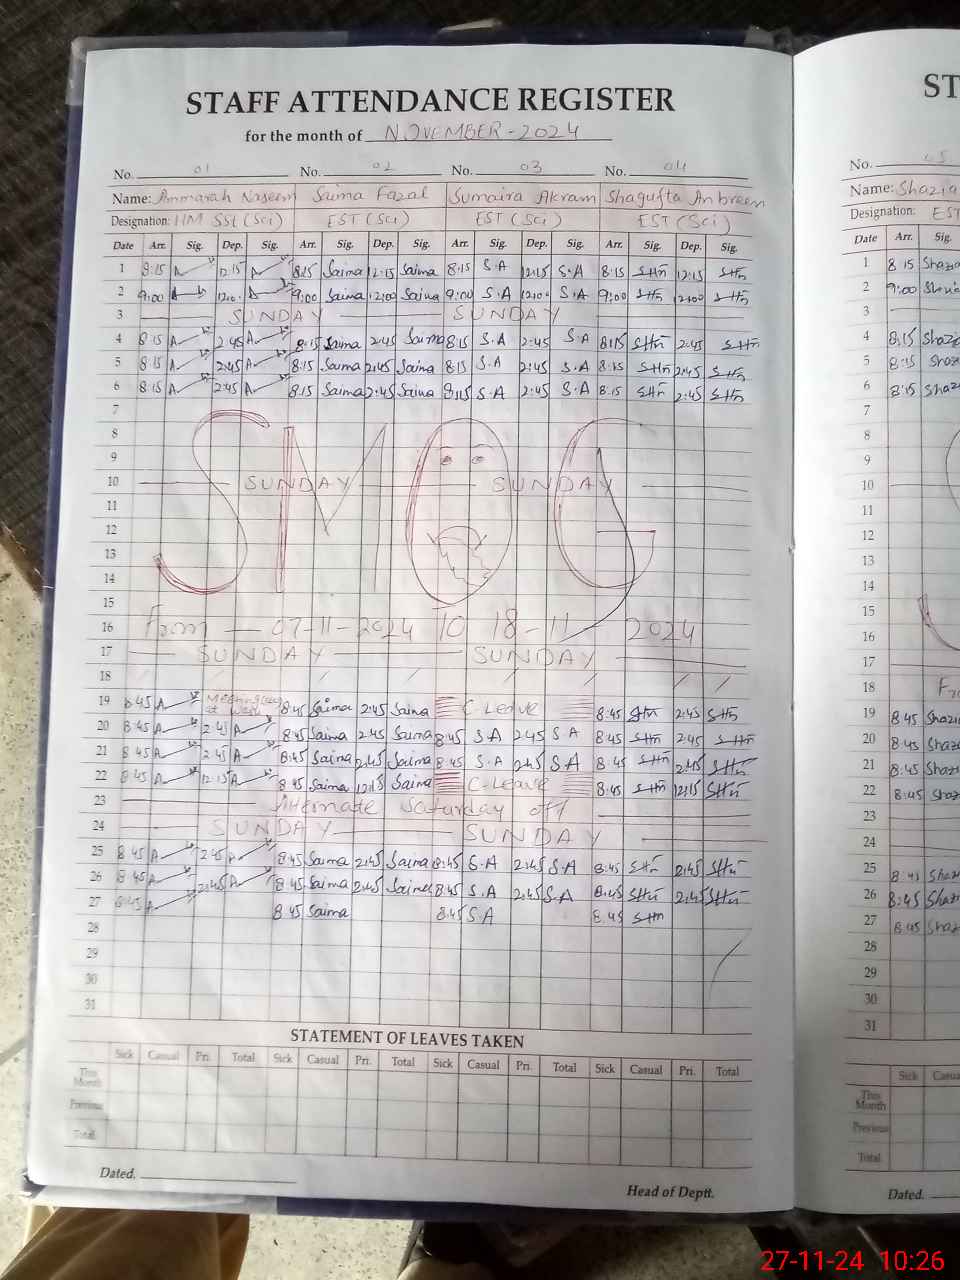 STAFF ATTENDANCE REGISTER
for the month of NOVEMBER-2024
No. 01 No. 02 No. 03 No. 04
Name: Ammarah Naseem Saima Fazal Sumaira Akram Shagufta Anbreen
Designation: HM SSt (Sci) EST (Sci) EST (Sci) EST (Sci)
Date Arr. Sig. Dep. Sig. Arr. Sig. Dep. Sig. Arr. Sig. Dep. Sig. Arr. Sig. Dep. Sig.
1 8:15 A 12:15 A 8:15 Saima 12:15 Saima 8:15 S.A 12:15 S.A 8:15 12:15
2 9:00 A 12:0 A 9:00 Saima 12:00 Saima 9:00 S.A 12:00 S.A 9:00 12:00
3 SUNDAY SUNDAY
4 8:15 A 2:45 A 8:15 Saima 2:45 Saima 8:15 S.A 2:45 S.A 8:15 2:45
5 8:15 A 2:45 A 8:15 Saima 2:45 Saima 8:15 S.A 2:45 S.A 8:15 2:45
6 8:15 A 2:45 A 8:15 Saima 2:45 Saima 8:15 S.A 2:45 S.A 8:15 2:45
7
8
SMOG
9
10 SUNDAY SUNDAY
11
12
13
14
15
16 From — 07-11-2024 TO 18-11 2024
17 SUNDAY SUNDAY
18
19 8:45 A Meeting at 8:45 Saima 2:45 Saima C-Leave 8:45 2:45
20 8:45 A 2:45 A 8:45 Saima 2:45 Saima 8:45 S.A 2:45 S.A 8:45 2:45
21 8:45 A 2:45 A 8:45 Saima 2:45 Saima 8:45 S.A 2:45 S.A 8:45 2:45
22 8:45 A 12:15 A 8:45 Saima 12:15 Saima C-Leave 8:45 12:15
23 Alternate Saturday off
24 SUNDAY SUNDAY
25 8:45 A 2:45 A 8:45 Saima 2:45 Saima 8:45 S.A 2:45 S.A 8:45 2:45
26 8:45 A 2:45 A 8:45 Saima 2:45 Saima 8:45 S.A 2:45 S.A 8:45 2:45
27 8:45 A 8:45 Saima 8:45 S.A 8:45
28
29
30
31
STATEMENT OF LEAVES TAKEN
Sick Casual Pri. Total Sick Casual Pri. Total Sick Casual Pri. Total Sick Casual Pri. Total
This Month
Previous
Total
Dated.
Head of Deptt.
ST
No. 05
Name: Shazia
Designation: EST
Date Arr. Sig.
1 8:15 Shazi
2 9:00
3
4 8:15 Shazi
5 8:15
6 8:15 Shaz
7
8
9
10
11
12
13
14
15
16
17
18
19 8:45 Shazi
20 8:45 Shaz
21 8:45 Shaz
22 8:45 Shaz
23
24
25 8:45 Shaz
26 8:45 Shaz
27 8:45 Shaz
28
29
30
31
Sick
This Month
Previous
Total
Dated.
27-11-24 10:26